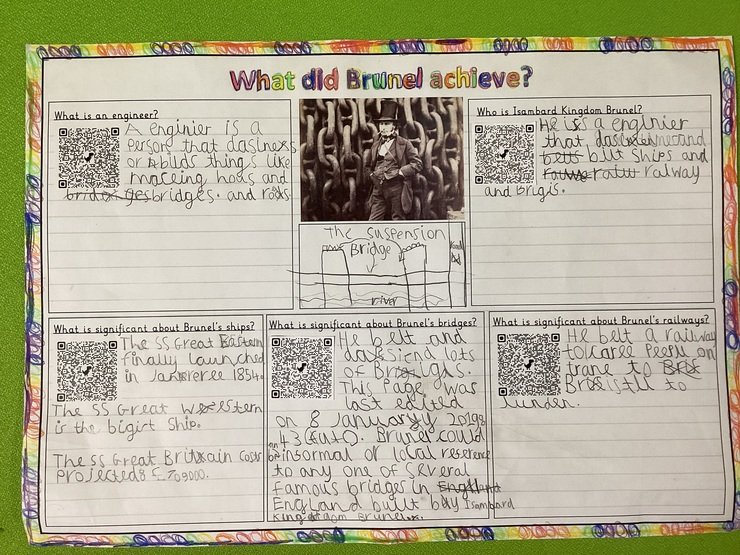 What did Brunel achieve?
What is an engineer?
A enginier is a
person that dasinexs
or builds things like
maceing hoas and
bridges. and roads
The suspension
Bridge
river
Who is Isambard Kingdom Brunel?
He is a enginier
that and
bilt Ships and
ralway
and brigis.
What is significant about Brunel's ships?
The SS Great Eastern
finally launched
in 1854.
The SS Great Western
is the bigirt Ship.
The SS Great Britain cost
projected £70900.
What is significant about Brunel's bridges?
He belt and
lots
of
This Page was
last edited
on 8 January
Brunel could
informal or local
to any one of Several
famous bridges in
England built by Isambard
Kingdom Brunel.
What is significant about Brunel's railways?
He belt a railway
to caree People on
trane to
Bristil to
lunden.